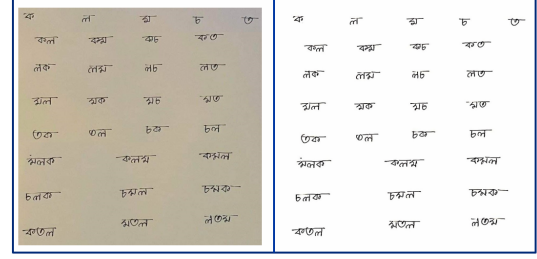 ক ল ম চ ত
কল কম কচ কত
লক লম লচ লত
মল মক মচ মত
তক তল চক চল
মলক কলম কমল
চলক চমল চমক
কতল মতল লতম
ক ল ম চ ত
কল কম কচ কত
লক লম লচ লত
মল মক মচ মত
তক তল চক চল
মলক কলম কমল
চলক চমল চমক
কতল মতল লতম